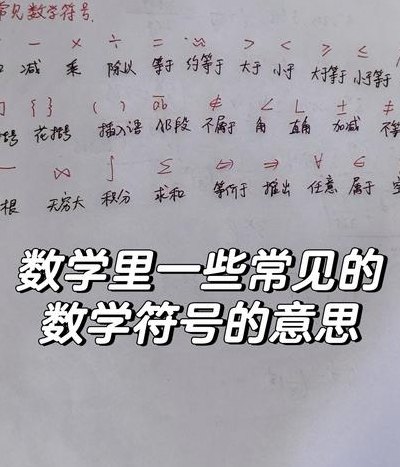 常见数学符号.
－ × ÷ = ≈ > < ≥ ≤
减 乘 除以 等于 约等于 大于 小于 大于等于 小于等于
] { } ( ) ab ∉ ∠ ∟ ± ≠
括号 花括号 插入语 线段 不属于 角 直角 加减 不等
∞ ∫ Σ ⇔ ⇒ ∀ ∈
根 无穷大 积分 求和 等价于 推出 任意 属于
数学里一些常见的
数学符号的意思